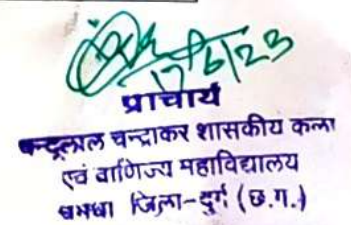 17/6/23
प्राचार्य
चन्दूलाल चन्द्राकर शासकीय कला
एवं वाणिज्य महाविद्यालय
धमधा जिला-दुर्ग (छ.ग.)